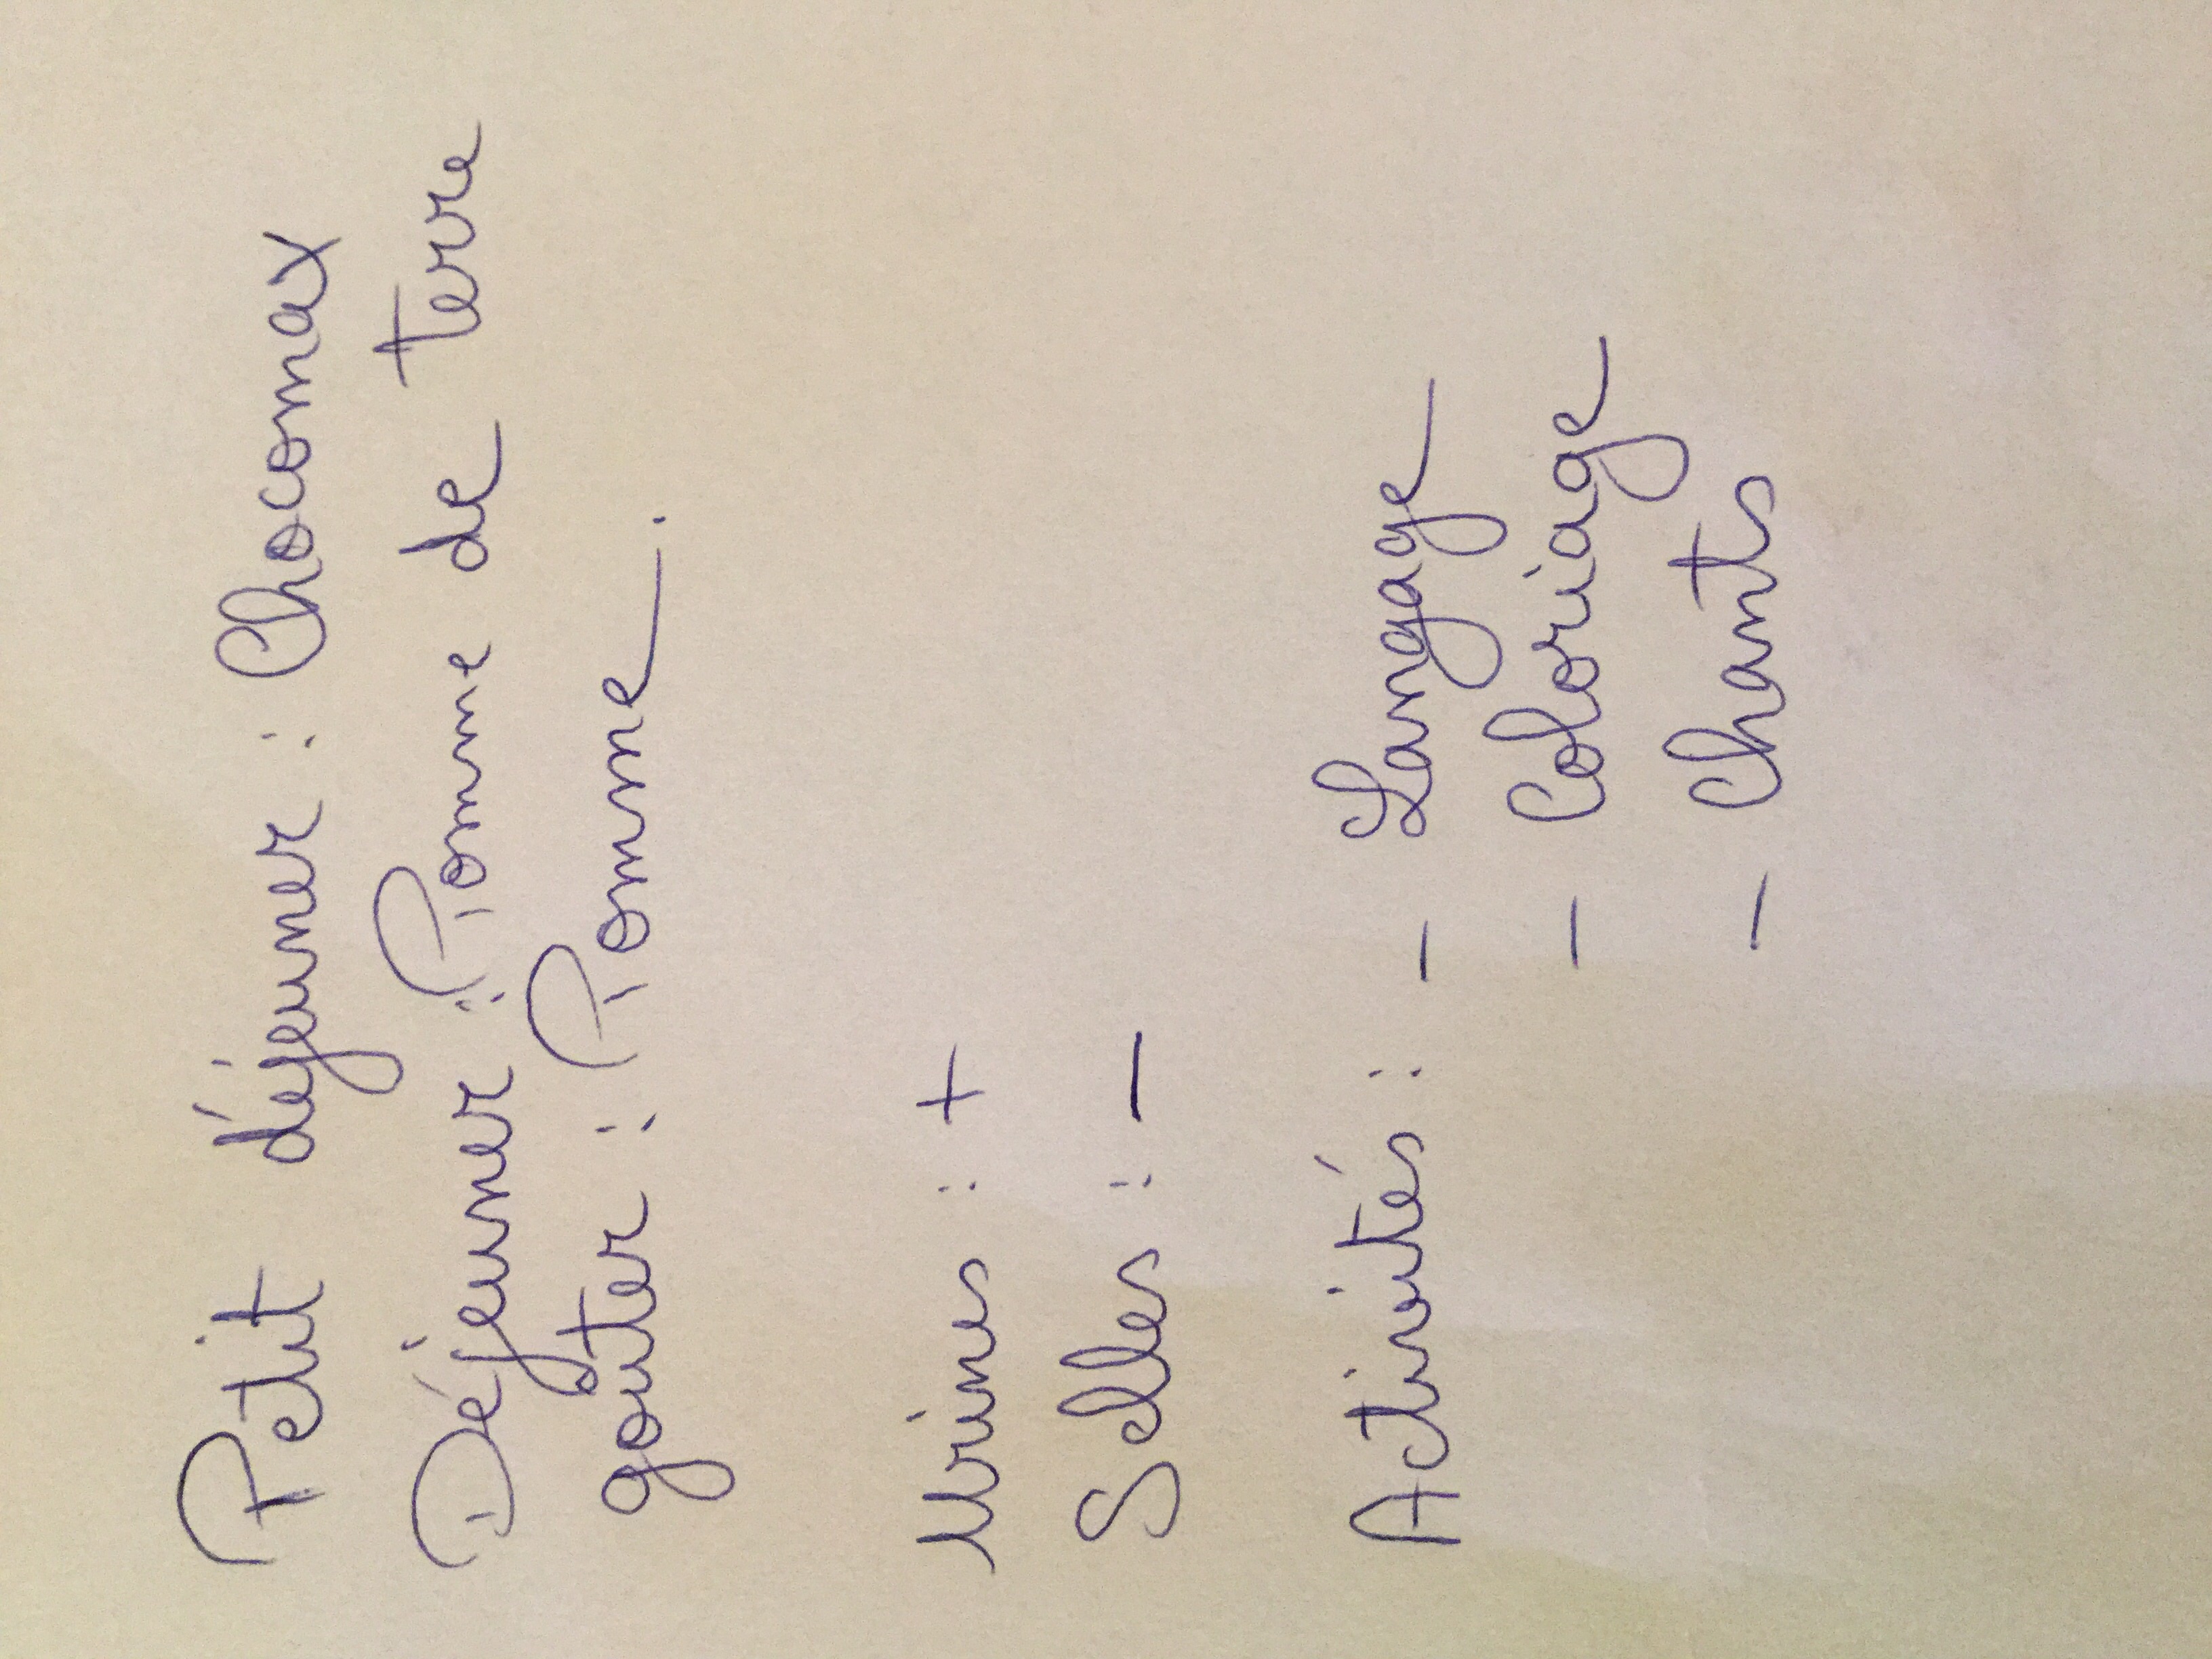 Petit déjeuner : Chocomax
Déjeuner : Pomme de terre
goûter : Pomme.
Urines : +
Selles : —
Activités : - Langage
- Coloriage
- Chants